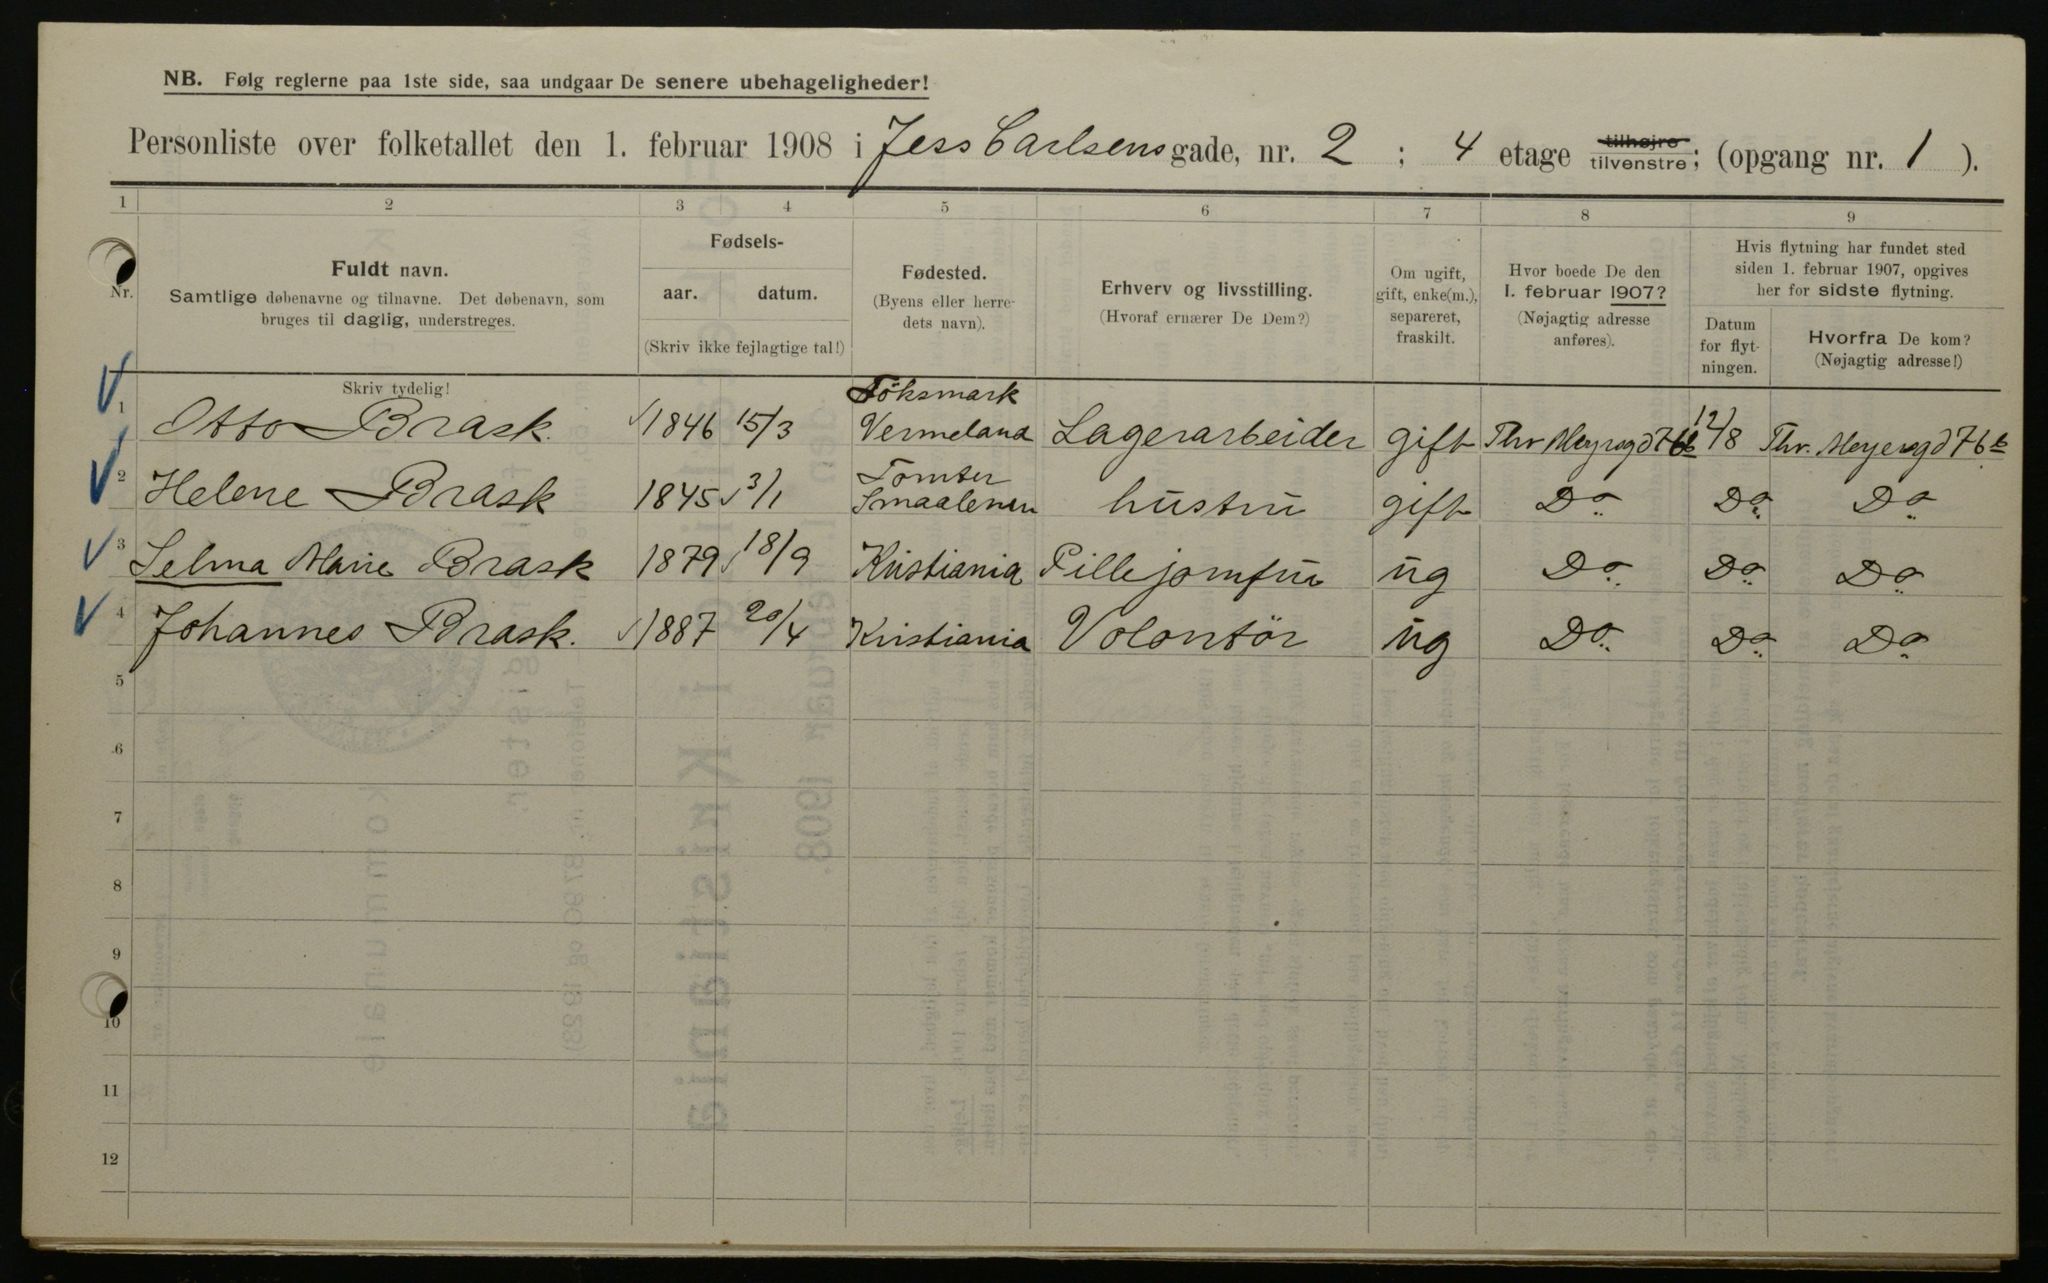 NB. Følg reglerne paa 1ste side, saa undgaar De senere ubehageligheder!
Personliste over folketallet den 1. februar 1908 i Jess Carlsens gade, nr. 2 ; 4 etage tilhøjre tilvenstre; (opgang nr. 1 ).
1 2 3 4 5 6 7 8 9
Nr.
Fuldt navn.
Samtlige døbenavne og tilnavne. Det døbenavn, som
bruges til daglig, understreges.
Skriv tydelig!
Fødsels-
aar. datum.
(Skriv ikke fejlagtige tal!)
Fødested.
(Byens eller herre-
dets navn).
Erhverv og livsstilling.
(Hvoraf ernærer De Dem?)
Om ugift,
gift, enke(m.),
separeret,
fraskilt.
Hvor boede De den
1. februar 1907?
(Nøjagtig adresse
anføres).
Hvis flytning har fundet sted
siden 1. februar 1907, opgives
her for sidste flytning.
Datum
for flyt-
ningen.
Hvorfra De kom?
(Nøjagtig adresse!)
Töksmark
1 Otto Brask. 1846 15/3 Vermeland Lagerarbeider gift Thv Meyrsgd 76b 12/8 Thv. Meyersgd 76b
Tomter
2 Helene Brask 1845 3/1 Smaalenen hustru gift Do Do Do
3 Selma Marie Brask 1879 18/9 Kristiania Pillejomfru ug Do Do Do
4 Johannes Brask. 1887 20/4 Kristiania Volontör ug Do Do Do
5
6
7
8
9
10
11
12